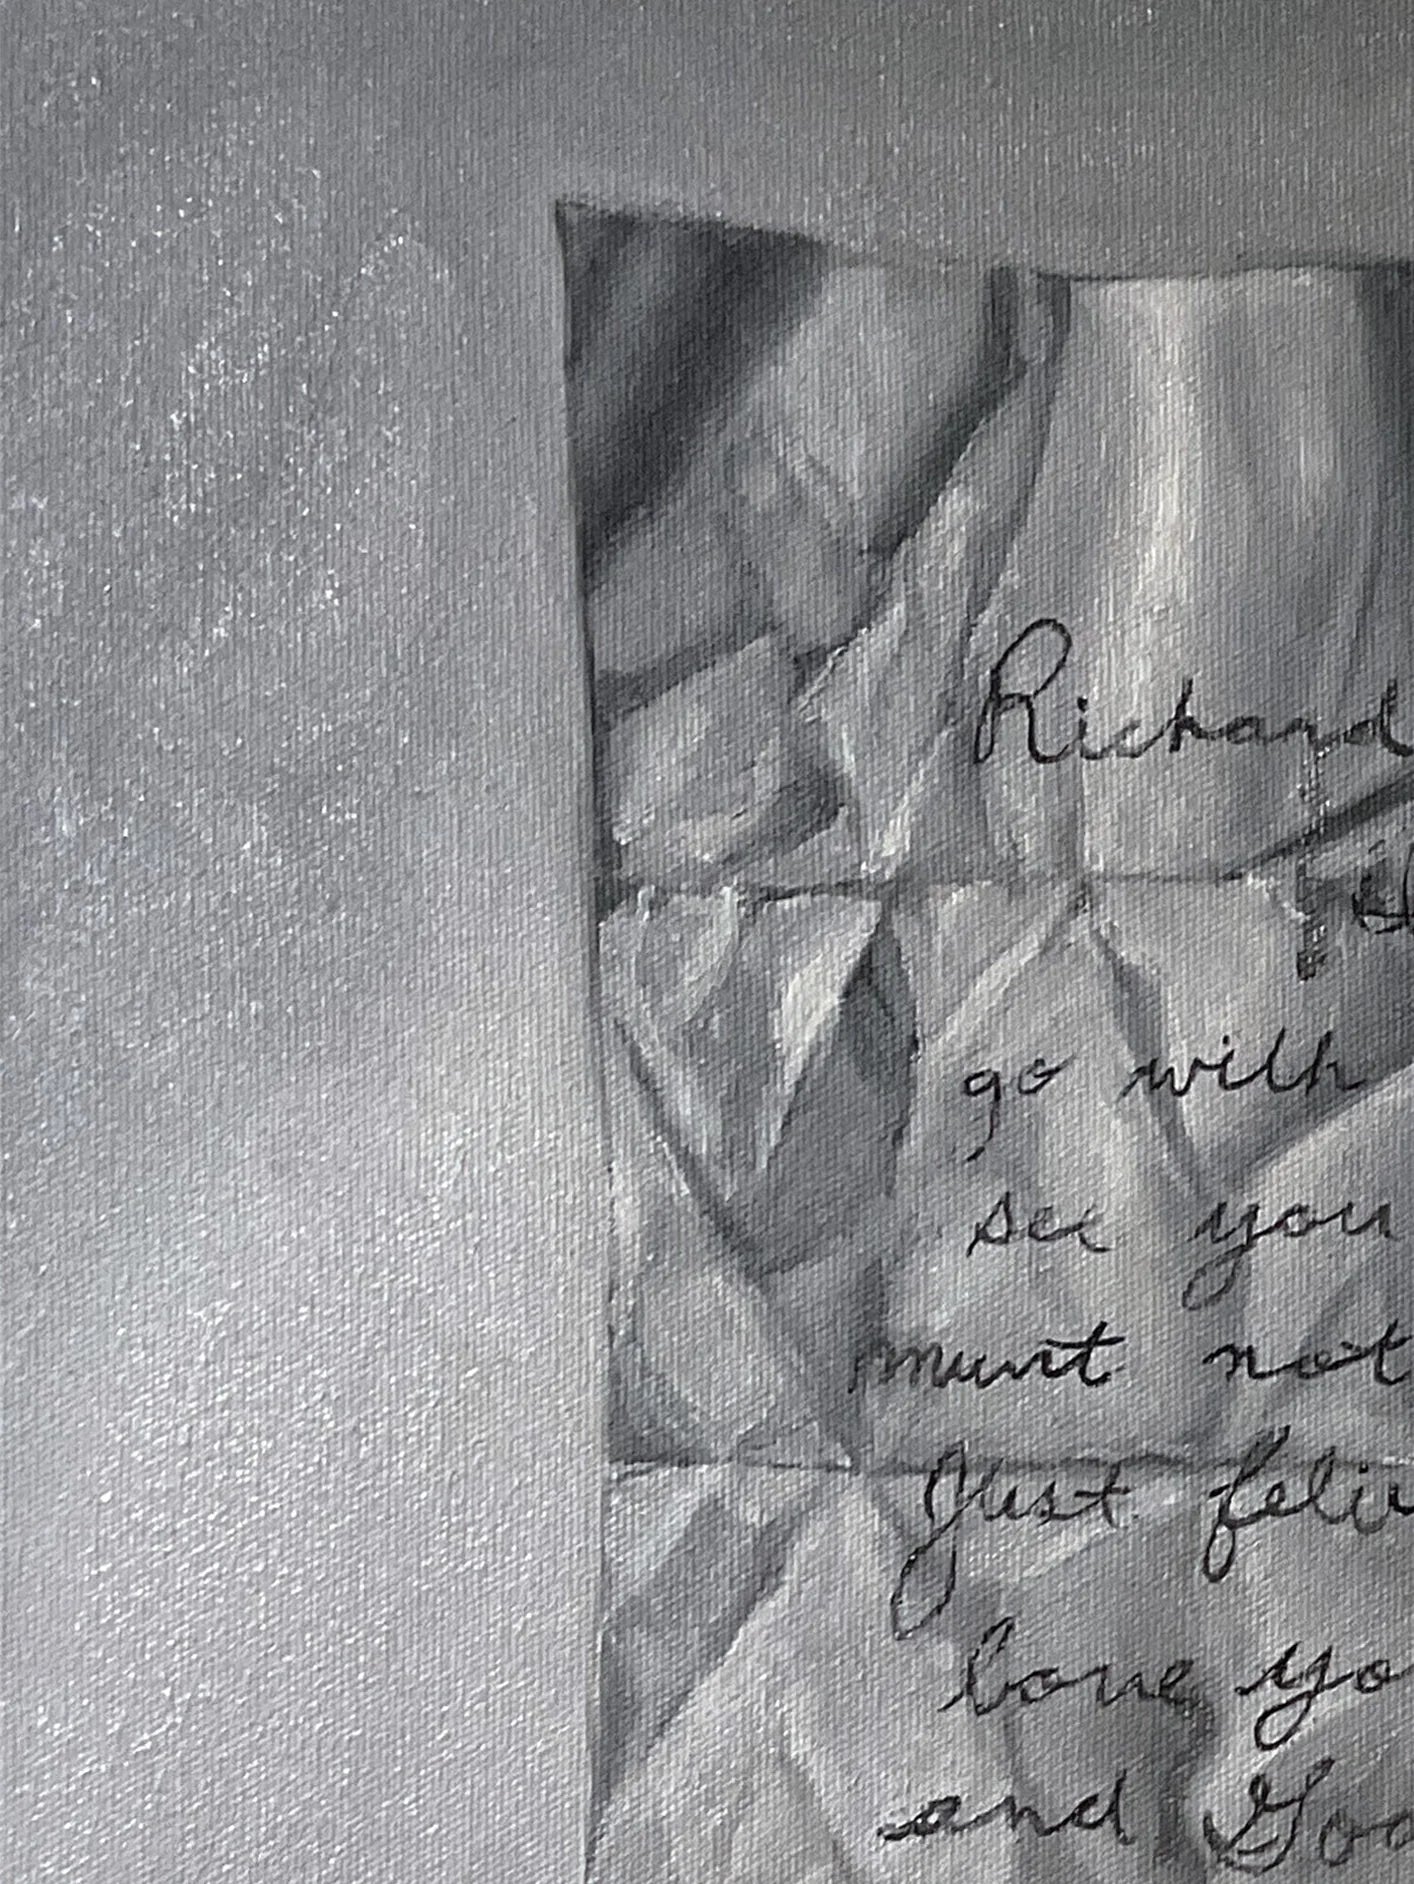 Richard
go with
see you
must not
Just belie
love yo
and Go